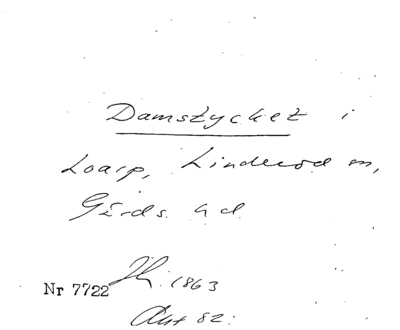 Damstycket i
Loarp, Linderöd sn,
Gärds hd
Nr 7722
1863
Akt 82.